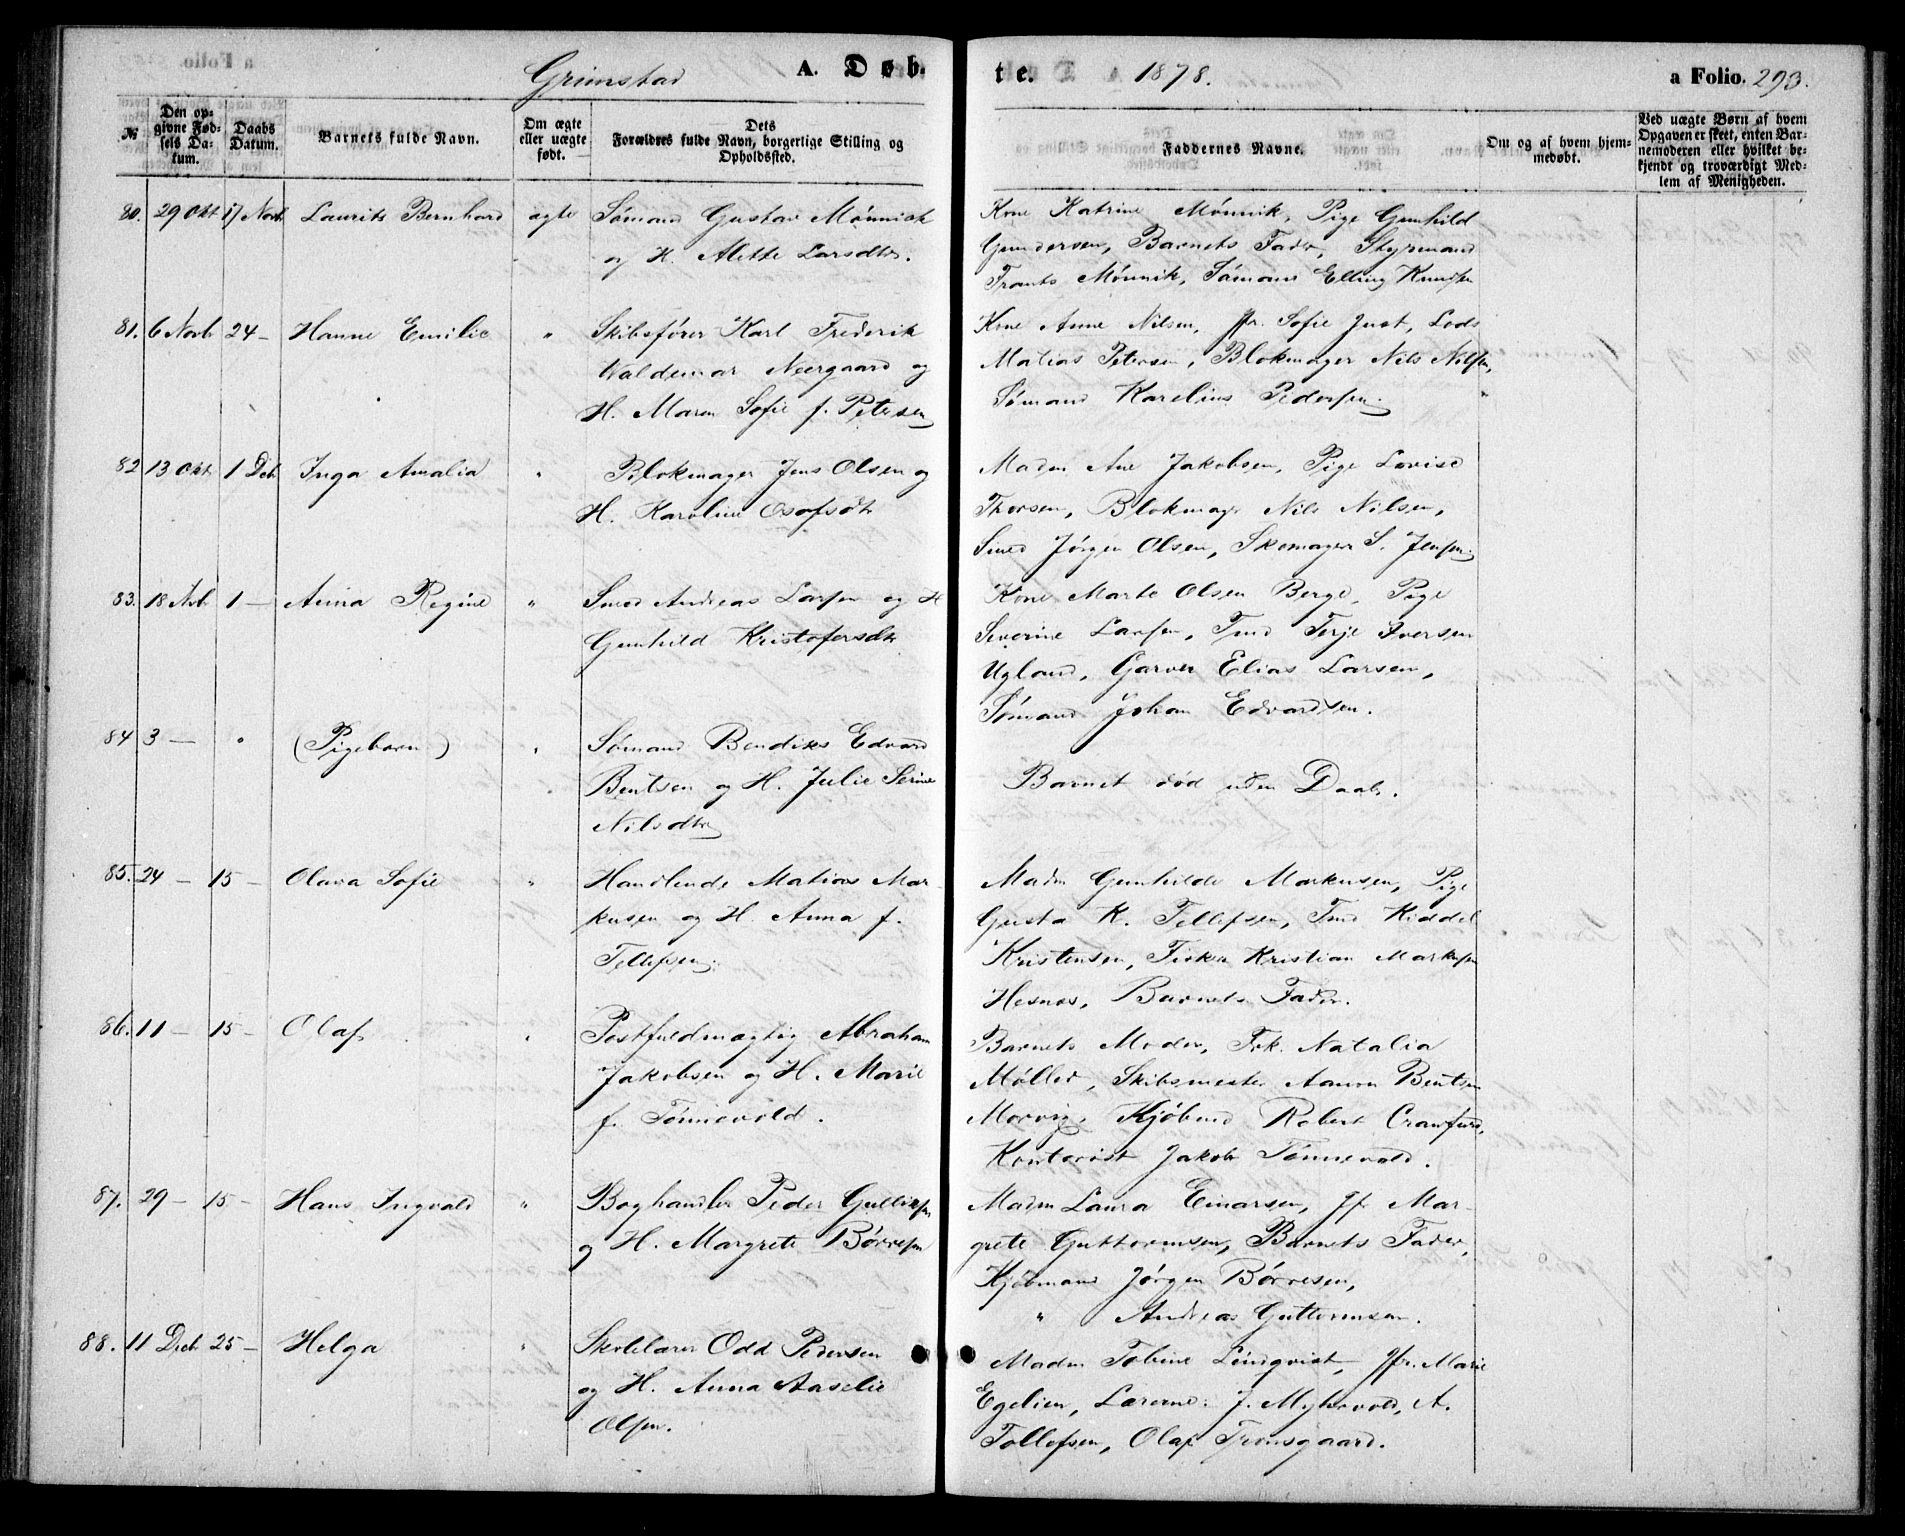 Grimstad A. Døb-
te. 1878. a Folio. 293.
№
Den op-
givne Fød-
sels Da-
tum.
Daabs
Datum.
Barnets fulde Navn.
Om ægte
eller uægte
født.
Dets
Forældres fulde Navn, borgerlige Stilling og
Opholdssted.
Faddernes Navne.
Om og af hvem hjem-
medøbt.
Ved uægte Børn af hvem
Opgaven er skeet, enten Bar-
nemoderen eller hvilket be-
kjendt og troværdigt Med-
lem af Menigheden.
80. 29 Okt 17 Novb Laurits Bernhard ægte Sømand Gustav Mønnich
og H. Alette Larsdtr.
Kone Katrine Mønnik, Pige Gunhild
Gundersen, Barnets Fader, Styrmand
Frants Mønnik, Sømand Elling Knudsen
81. 6 Novb 24 – Hanne Emilie " Skibsfører Karl Frederik
Waldemar Neergaard og
H. Maren Sofie f. Petersen
Kone Anne Nilsen, Jfr. Sofie Just, Lods
Matias Petersen, Blokmager Nils Nilsen,
Sømand Karelius Pedersen.
82 13 Okt 1 Deb Inga Amalia " Blokmager Jens Olsen og
H. Karoline Osufsdtr
Madm Ane Jakobsen, Pige Lovise
Thorsen, Blokmager Nils Nilsen,
Smed Jørgen Olsen, Skomager S. Jensen.
83. 18 Nvb 1 – Anna Regine " Smed Andreas Larsen og H
Gunhild Kristofersdtr
Kone Marte Olsen Berge, Pige
Severine Larsen, Tmd Terje Iversen
Ugland, Garver Elias Larsen,
Sømand Johan Edvardsen.
84 3 – " (Pigebarn) " Sømand Bendiks Edvard
Bentsen og H. Julie Serine
Nilsdtr
Barnet død uden Daab.
85. 24 – 15 – Olava Sofie " Handlende Matias Mar-
kusen og H. Anna f.
Tellefsen.
Madm Gunhilde Markusen, Pige
Gusta K. Tellefsen, Tmd Kiddel
Kristensen, Fisker Kristian Markusen
Hesnes, Barnets Fader.
86. 11 – 15 – Olaf " Postfuldmægtig Abraham
Jakobsen og H. Marie
f. Tønnevold.
Barnets Moder, Frk. Natalia
Møller, Skibsmester Aanon Bentsen
Morvig, Kjøbmd Robert Crawfurd,
Kontorist Jakob Tønnevold.
87. 29 – 15 – Hans Ingvald " Boghandler Peder Gulliksen
og H. Margrete Børresen
Madm Laura Einarsen, Jfr Mar-
grete Guttormsen, Barnets Fader,
Kjøbmand Jørgen Børresen,
" Andreas Guttormsen.
88. 11 Deb 25 – Helga " Skolelærer Odd Pedersen
og H. Anna Aaselie
Olsen.
Madm Tobine Lindqvist, Jfr. Marie
Egelien, Lærerne: J. Myhrvold, A.
Tollefsen, Olaf Tronsgaard.